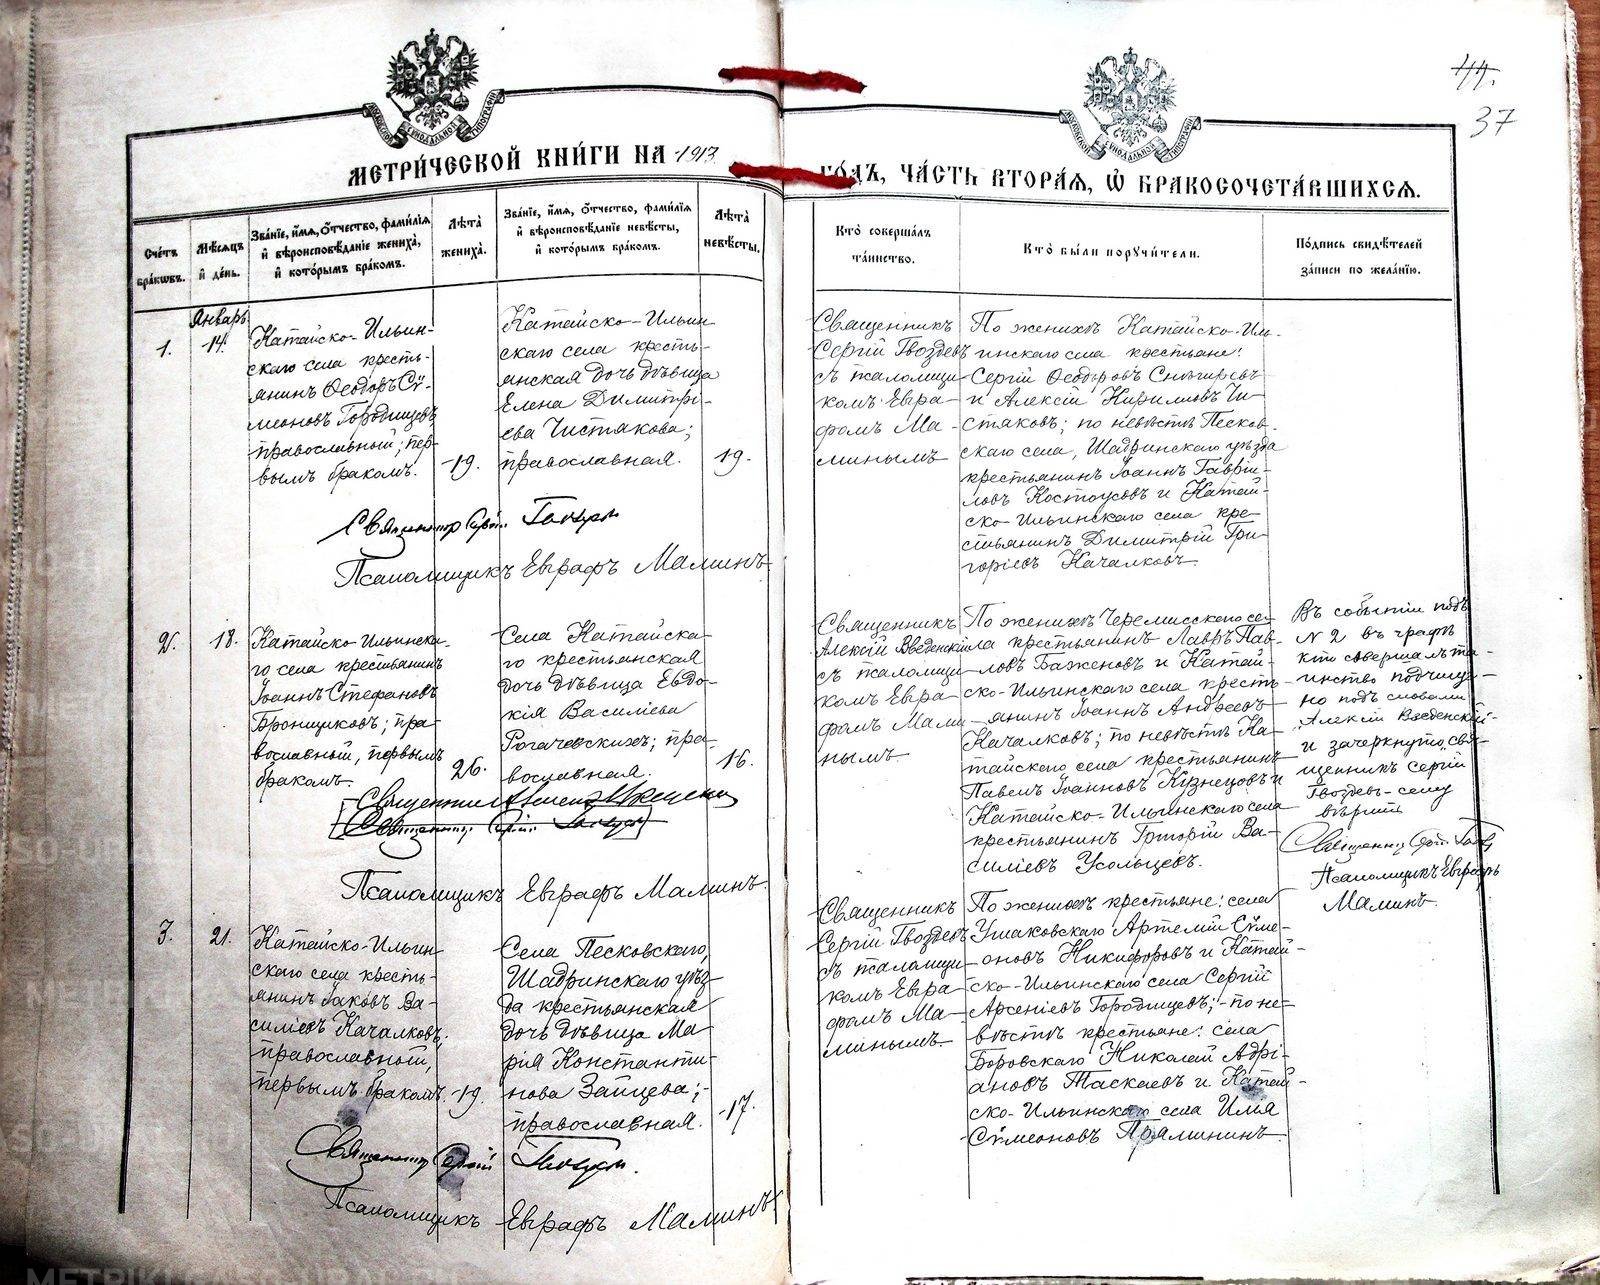 44.
37
МЕТРИ́ЧЕСКОЙ КНИ́ГИ НА 1913
ГО́ДЪ, ЧА́СТЬ ВТОРА́Я, Ѡ БРАКОСОЧЕТА́ВШИХСЯ.
Сче́тъ бра́кωвъ.
Мѣ́сяцъ и҆ де́нь.
Зва́нїе, и҆́мя, ѻ҆́тчество, фами́лїя
и҆ вѣроисповѣ́данїе жениха̀,
и҆ кото́рымъ бра́комъ.
Лѣта̀ жениха̀.
Зва́нїе, и҆́мя, ѻ҆́тчество, фами́лїя
и҆ вѣроисповѣ́данїе невѣ́сты,
и҆ кото́рымъ бра́комъ.
Лѣта̀ невѣ́сты.
Кто̀ соверша́лъ
та́инство.
Кто̀ бы́ли порꙋчи́тели.
По́дпись свидѣ́телей
за́писи по жела́нїю.
1.
Январь
14.
Катайско-Ильин-
скаго села кресть-
янинъ Ѳеодоръ Сѵ-
меоновъ Городищевъ,
православный; пер-
вымъ бракомъ.
19.
Катайско-Ильин
скаго села кресть-
янская дочь дѣвица
Елена Димитрі-
ева Чистякова;
православная.
19.
Священникъ
Сергій Гвоздевъ
съ псаломщи-
комъ Евгра-
фомъ Ма-
минымъ
По женихѣ Катайско-Иль-
инскаго села крестьяне:
Сергій Ѳеодоровъ Снигиревъ
и Алексій Кириловъ Чи-
стяковъ; по невѣстѣ Песков-
скаго села, Шадринскаго уѣзда
крестьянинъ Іоаннъ Гаврі-
ловъ Костоусовъ и Катай-
ско-Ильинскаго села кре-
стьянинъ Димитрій Гри-
горіевъ Качалковъ
Священникъ Сергій Гвоздевъ
Псаломщикъ Евграфъ Маминъ
2.
18.
Катайско-Ильинска-
го села крестьянинъ
Іоаннъ Стефановъ
Бронщиковъ; пра-
вославный, первымъ
бракомъ
26.
Села Катайска-
го крестьянская
дочь дѣвица Евдо-
кія Василіева
Рогачевскихъ; пра-
вославная.
16.
Священникъ
Алексій Введенскій
съ псаломщи-
комъ Евгра-
фомъ Мами-
нымъ
По женихѣ Черемисскаго се-
ла крестьянинъ Лавръ Пав-
ловъ Баженовъ и Катай-
ско-Ильинскаго села кресть-
янинъ Іоаннъ Андреевъ
Качалковъ; по невѣстѣ Ка-
тайскаго села крестьянинъ
Павелъ Іоанновъ Кузнецовъ и
Катайско-Ильинскаго села
крестьянинъ Григорій Ва-
силіевъ Усольцевъ.
Въ событіи подъ
N 2 въ графѣ
кто совершалъ та-
инство подчище-
но подъ словами
Алексій Введенскій
и зачеркнуто свя-
щенникъ Сергій
Гвоздевъ - сему
вѣрить
Священникъ Сергій Гвоздевъ
Псаломщикъ Евграфъ
Маминъ.
Священникъ Алексій Введенскій
Священникъ Сергій Гвоздевъ
Псаломщикъ Евграфъ Маминъ.
3.
21.
Катайско-Ильин-
скаго села кресть-
янинъ Іаковъ Ва-
силіевъ Качалковъ,
православный,
первымъ бракомъ.
19.
Села Песковскаго,
Шадринскаго уѣз-
да крестьянская
дочь дѣвица Ма-
рія Константи-
нова Зайцева;-
православная.
17.
Священникъ
Сергій Гвоздевъ
съ псаломщи-
комъ Евгра-
фомъ Ма-
минымъ.
По женихѣ крестьяне: села
Ушаковскаго Артемій Сѵме-
оновъ Никифоровъ и Катай-
ско-Ильинскаго села Сергій
Арсеніевъ Городищевъ; - по не-
вѣстѣ крестьяне: села
Боровскаго Николай Адрі-
ановъ Таскаевъ и Катай-
ско-Ильинскаго села Илія
Сѵмеоновъ Пряминин.
Священникъ Сергій Гвоздевъ.
Псаломщикъ Евграфъ Маминъ